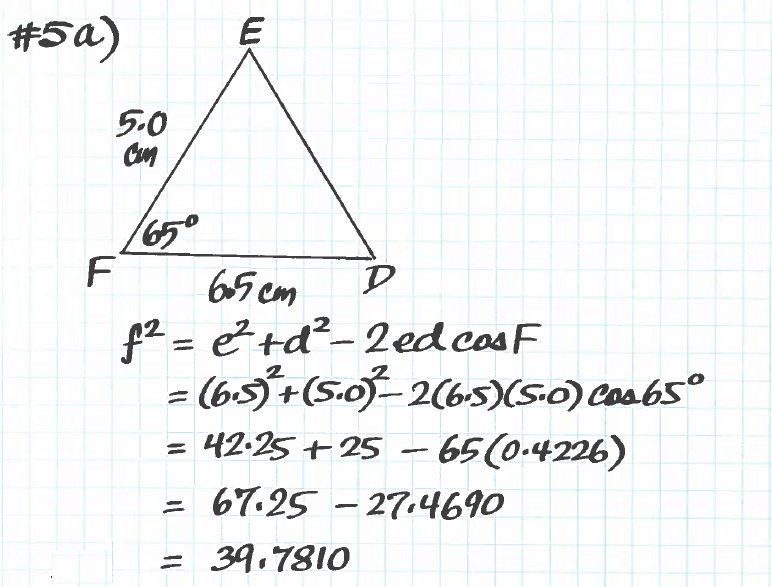 #5a)
E
5.0
cm
65°
F
6.5 cm
D
f² = e² + d² - 2ed cos F
= (6.5)² + (5.0)² - 2(6.5)(5.0) cos 65°
= 42.25 + 25 - 65(0.4226)
= 67.25 - 27.4690
= 39.7810